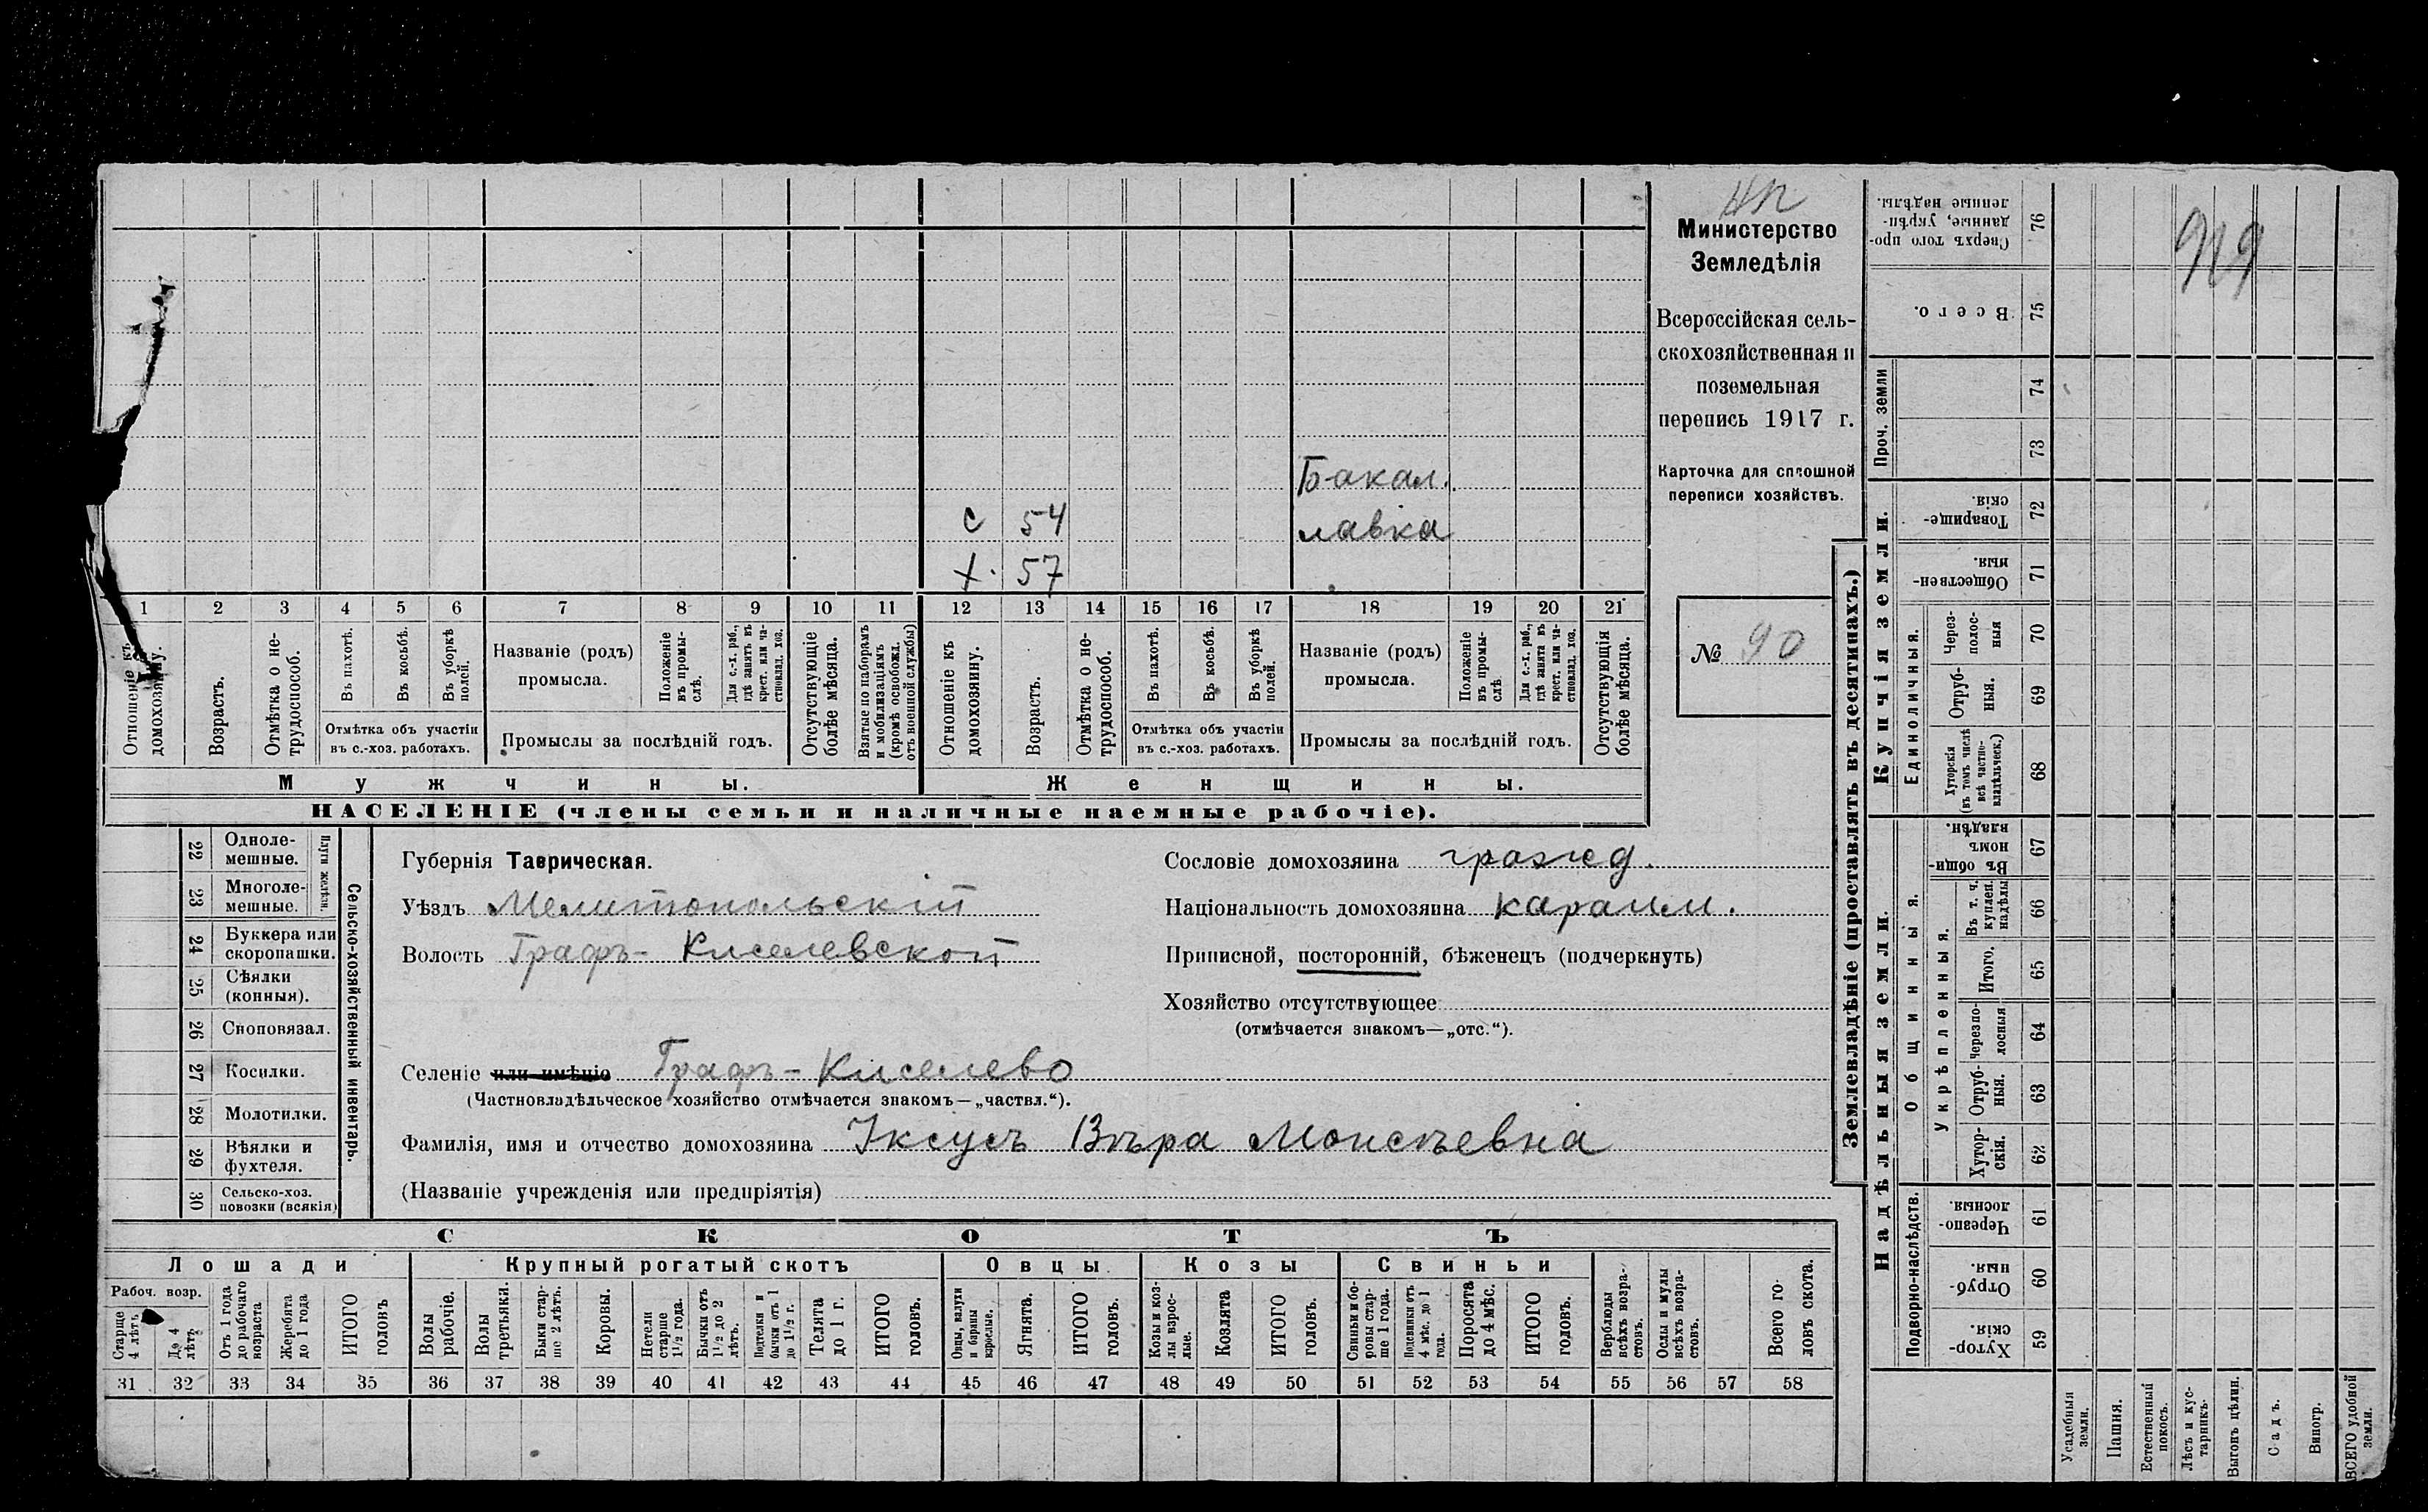 Министерство
Земледѣлія
Всероссійская сель-
скохозяйственная и
поземельная
перепись 1917 г.
Карточка для сплошной
переписи хозяйствъ.
№ 90
919
Бакал.
с 54 лавка
х. 57
1 2 3 4 5 6 7 8 9 10 11 12 13 14 15 16 17 18 19 20 21
Отношеніе къ домохозяину.
Возрастъ.
Отмѣтка о не-
трудоспособ.
Въ пахотѣ.
Въ косьбѣ.
Въ уборкѣ
полей.
Отмѣтка объ участіи
въ с.-хоз. работахъ.
Названіе (родъ)
промысла.
Положеніе
въ промы-
слѣ.
Для с.-х. раб.,
гдѣ занятъ въ
крест. или ча-
стновлад. хоз.
Промыслы за послѣдній годъ.
Отсутствующіе
болѣе мѣсяца.
Взятые по наборамъ
и мобилизаціямъ
(кромѣ освобожд.
отъ военной службы)
Отношеніе къ
домохозяину.
Возрастъ.
Отмѣтка о не-
трудоспособ.
Въ пахотѣ.
Въ косьбѣ.
Въ уборкѣ
полей.
Отмѣтка объ участіи
въ с.-хоз. работахъ.
Названіе (родъ)
промысла.
Положеніе
въ промы-
слѣ
Для с.-х. раб.,
гдѣ занята въ
крест. или ча-
стновлад. хоз.
Промыслы за послѣдній годъ.
Отсутствующія
болѣе мѣсяца.
Мужчины.
Женщины.
НАСЕЛЕНІЕ (члены семьи и наличные наемные рабочіе).
22 Одноле-
мешные.
23 Многоле-
мешные.
Плуги желѣзн.
24 Буккера или
скоропашки.
25 Сѣялки
(конныя).
26 Сноповязал.
27 Косилки.
28 Молотилки.
29 Вѣялки и
фухтеля.
30 Сельско-хоз.
повозки (всякія)
Сельско-хозяйственный инвентарь.
Губернія Таврическая.
Уѣздъ Мелитопольскій
Волость Графъ-Киселевской
Сословіе домохозяина гражд.
Національность домохозяина караим.
Приписной, посторонній, бѣженецъ (подчеркнуть)
Хозяйство отсутствующее
(отмѣчается знакомъ—„отс.“).
Селеніе или имѣніе Графъ-Киселево
(Частновладѣльческое хозяйство отмѣчается знакомъ—„частвл.“).
Фамилія, имя и отчество домохозяина Iксусъ Вѣра Моисѣевна
(Названіе учрежденія или предпріятія)
СКОТЪ
Лошади
Крупный рогатый скотъ
Овцы
Козы
Свиньи
Рабоч. возр.
Старше
4 лѣтъ
До 4
лѣтъ
Отъ 1 года
до рабочаго
возраста
Жеребята
до 1 года
ИТОГО
головъ
Волы
рабочіе.
Волы
третьяки.
Быки стар-
ше 2 лѣтъ.
Коровы.
Нетели
старше
1 1/2 года.
Бычки отъ
1 1/2 до 2
лѣтъ.
Подтелки и
бычки отъ 1
до 1 1/2 г.
Телята
до 1 г.
ИТОГО
головъ.
Овцы, валухи
и бараны
взрослые.
Ягнята.
ИТОГО
головъ.
Козы и коз-
лы взрос-
лые.
Козлята
ИТОГО
головъ.
Свиньи и бо-
ровы стар-
ше 1 года.
Подсвинки отъ
4 мѣс. до 1
года.
Поросята
до 4 мѣс.
ИТОГО
головъ.
Верблюды
всѣхъ возра-
стовъ.
Ослы и мулы
всѣхъ возра-
стовъ.
Всего го-
ловъ скота.
31 32 33 34 35 36 37 38 39 40 41 42 43 44 45 46 47 48 49 50 51 52 53 54 55 56 57 58
Землевладѣніе (проставлять въ десятинахъ.)
Сверхъ того про-
данные, укрѣп-
ленные надѣлы.
76
Всего.
75
Проч. земли
74
73
Купчія земли.
Товарище-
скія.
72
Обществен-
ныя.
71
Единоличныя.
Через-
полос-
ныя
70
Отруб-
ныя.
69
Хуторскія
(въ томъ числѣ
всѣ частно-
владѣльческ.)
68
Надѣльныя земли.
Общинныя.
Въ общин-
номъ
владѣн.
67
Укрѣпленныя.
Въ т. ч.
куплен.
надѣлы
66
Итого.
65
Черезпо-
лосныя
64
Отруб-
ныя.
63
Хутор-
скія.
62
Подворно-наслѣдств.
Черезпо-
лосныя
61
Отруб-
ныя.
60
Хутор-
скія
59
Усадебныя
земли.
Пашня.
Естественный
покосъ.
Лѣсъ и кус-
тарникъ.
Выгонъ цѣлин.
Садъ.
Виногр.
ВСЕГО удобной
земли.